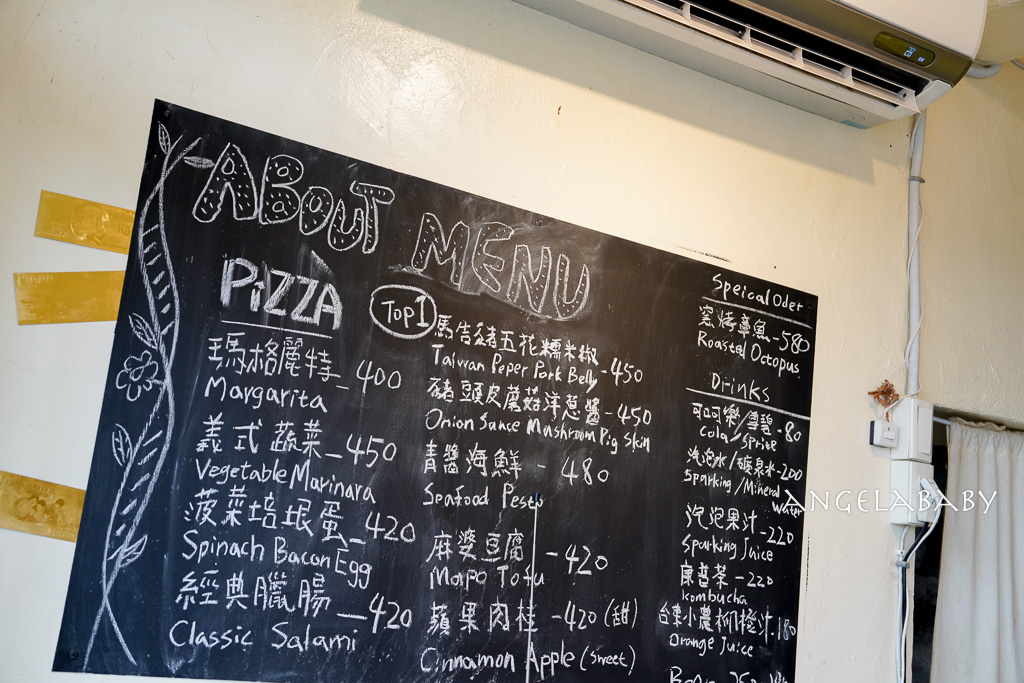 ABOUT MENU
PIZZA
瑪格麗特-400
Margarita
義式蔬菜-450
Vegetable Marinara
菠菜培根蛋-420
Spinach Bacon Egg
經典臘腸-420
Classic Salami
Top1
馬告豬五花糯米椒-450
Taiwan Peper Pork Belly
豬頭皮蘑菇洋蔥醬-450
Onion Sauce Mushroom Pig Skin
青醬海鮮-480
Seafood Pesto
麻婆豆腐-420
Mapo Tofu
蘋果肉桂-420(甜)
Cinnamon Apple (sweet)
Speical Oder
窯烤章魚-580
Roasted Octopus
Drinks
可口可樂/雪碧-80
Cola/Sprite
汽泡水/礦泉水-200
Sparking/Mineral Water
汽泡果汁-220
Sparking Juice
康普茶-220
Kombucha
台東小農柳橙汁.180
Orange Juice
ANGELABABY